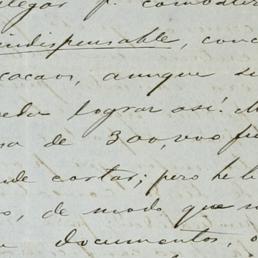 llegar p. combatir
indispensable, conc
cacao, aunque se
pueda lograr así! M
sa de 300,000 fu
de costar; pero he le
o, de modo que n
documentos, o